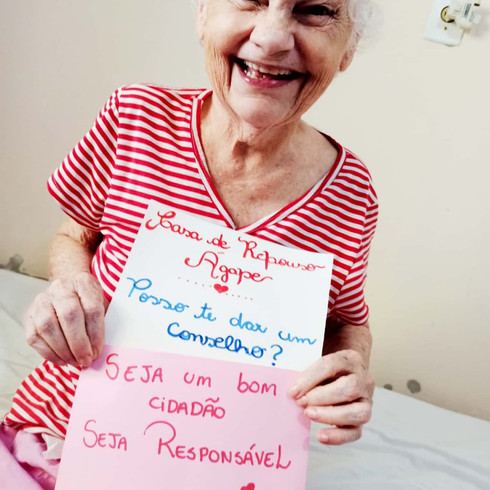 Casa de Repouso
Agape
Posso te dar um
Conselho?
SEJA UM BOM
CIDADÃO
SEJA RESPONSÁVEL